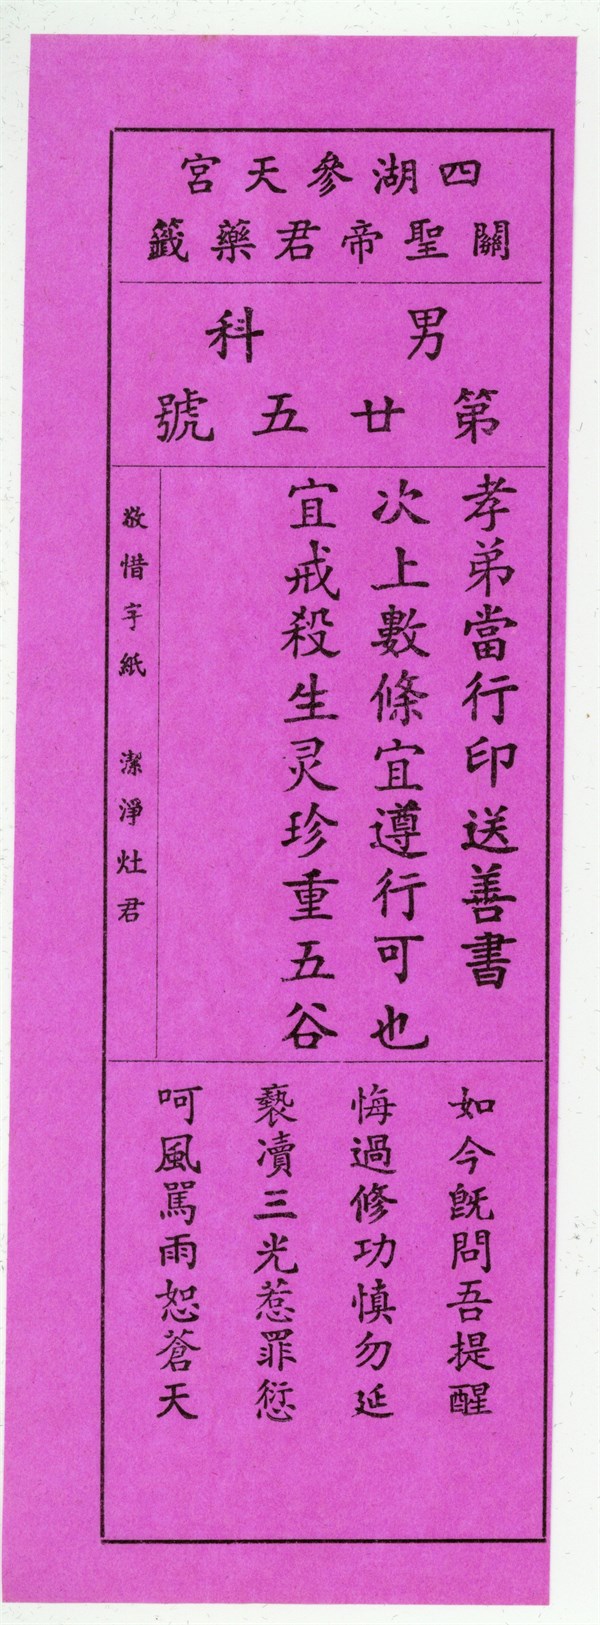 四湖參天宮
關聖帝君藥籤
男科
第廿五號
孝弟當行印送善書
次上數條宜遵行可也
宜戒殺生灵珍重五谷
敬惜字紙 潔淨灶君
如今既問吾提醒
悔過修功慎勿延
褻瀆三光惹罪愆
呵風罵雨恕蒼天